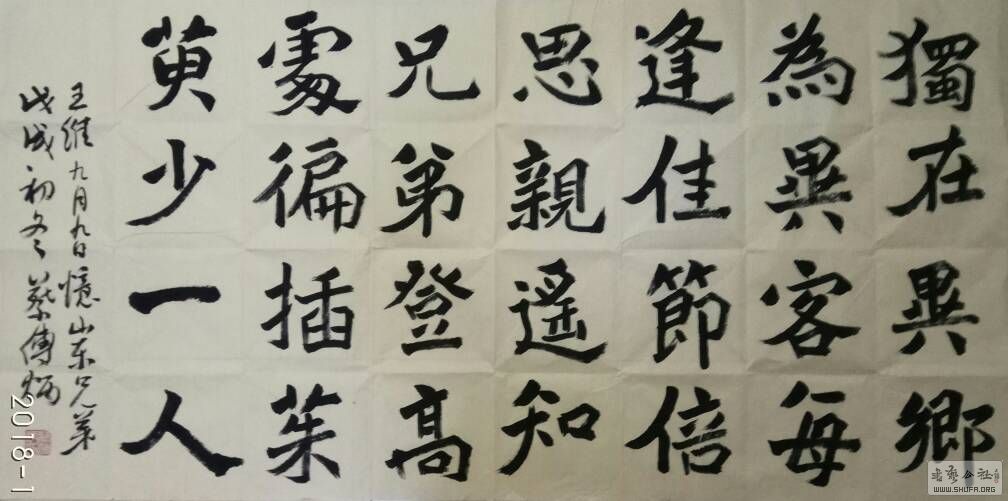 獨在異鄉
為異客每
逢佳節倍
思親遙知
兄弟登高
處徧插茱
萸少一人
王維九月九日憶山東兄弟
戊戌初冬蔡傳炳
2018-1
書藝公社
WWW.SHUFA.ORG